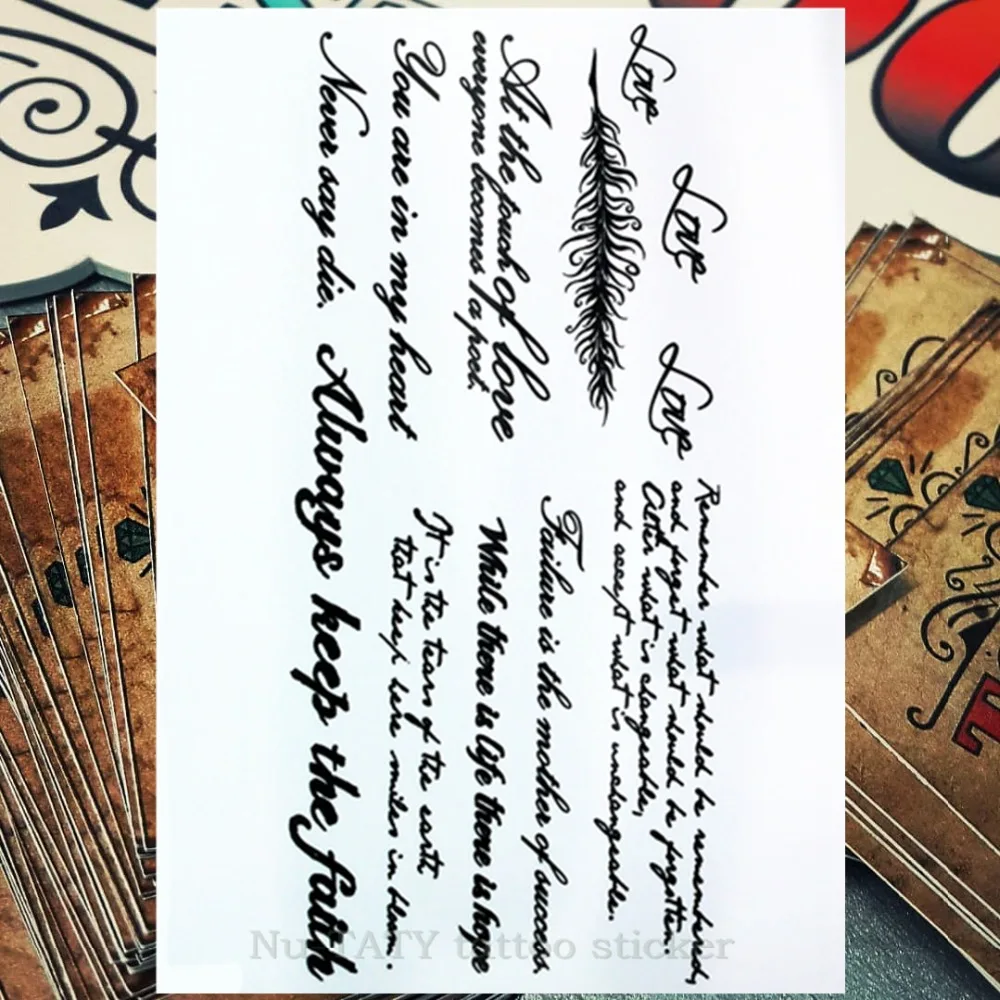 Love
Love
Love
At the touch of love
everyone becomes a poet.
You are in my heart
Never say die.
Remember what should be remembered,
and forget what should be forgotten.
Alter what is changeable,
and accept what is unchangeable.
Failure is the mother of success
While there is life there is hope
It is the tears of the earth
that keep here smiles in bloom.
Always keep the faith
NuTATY tattoo sticker